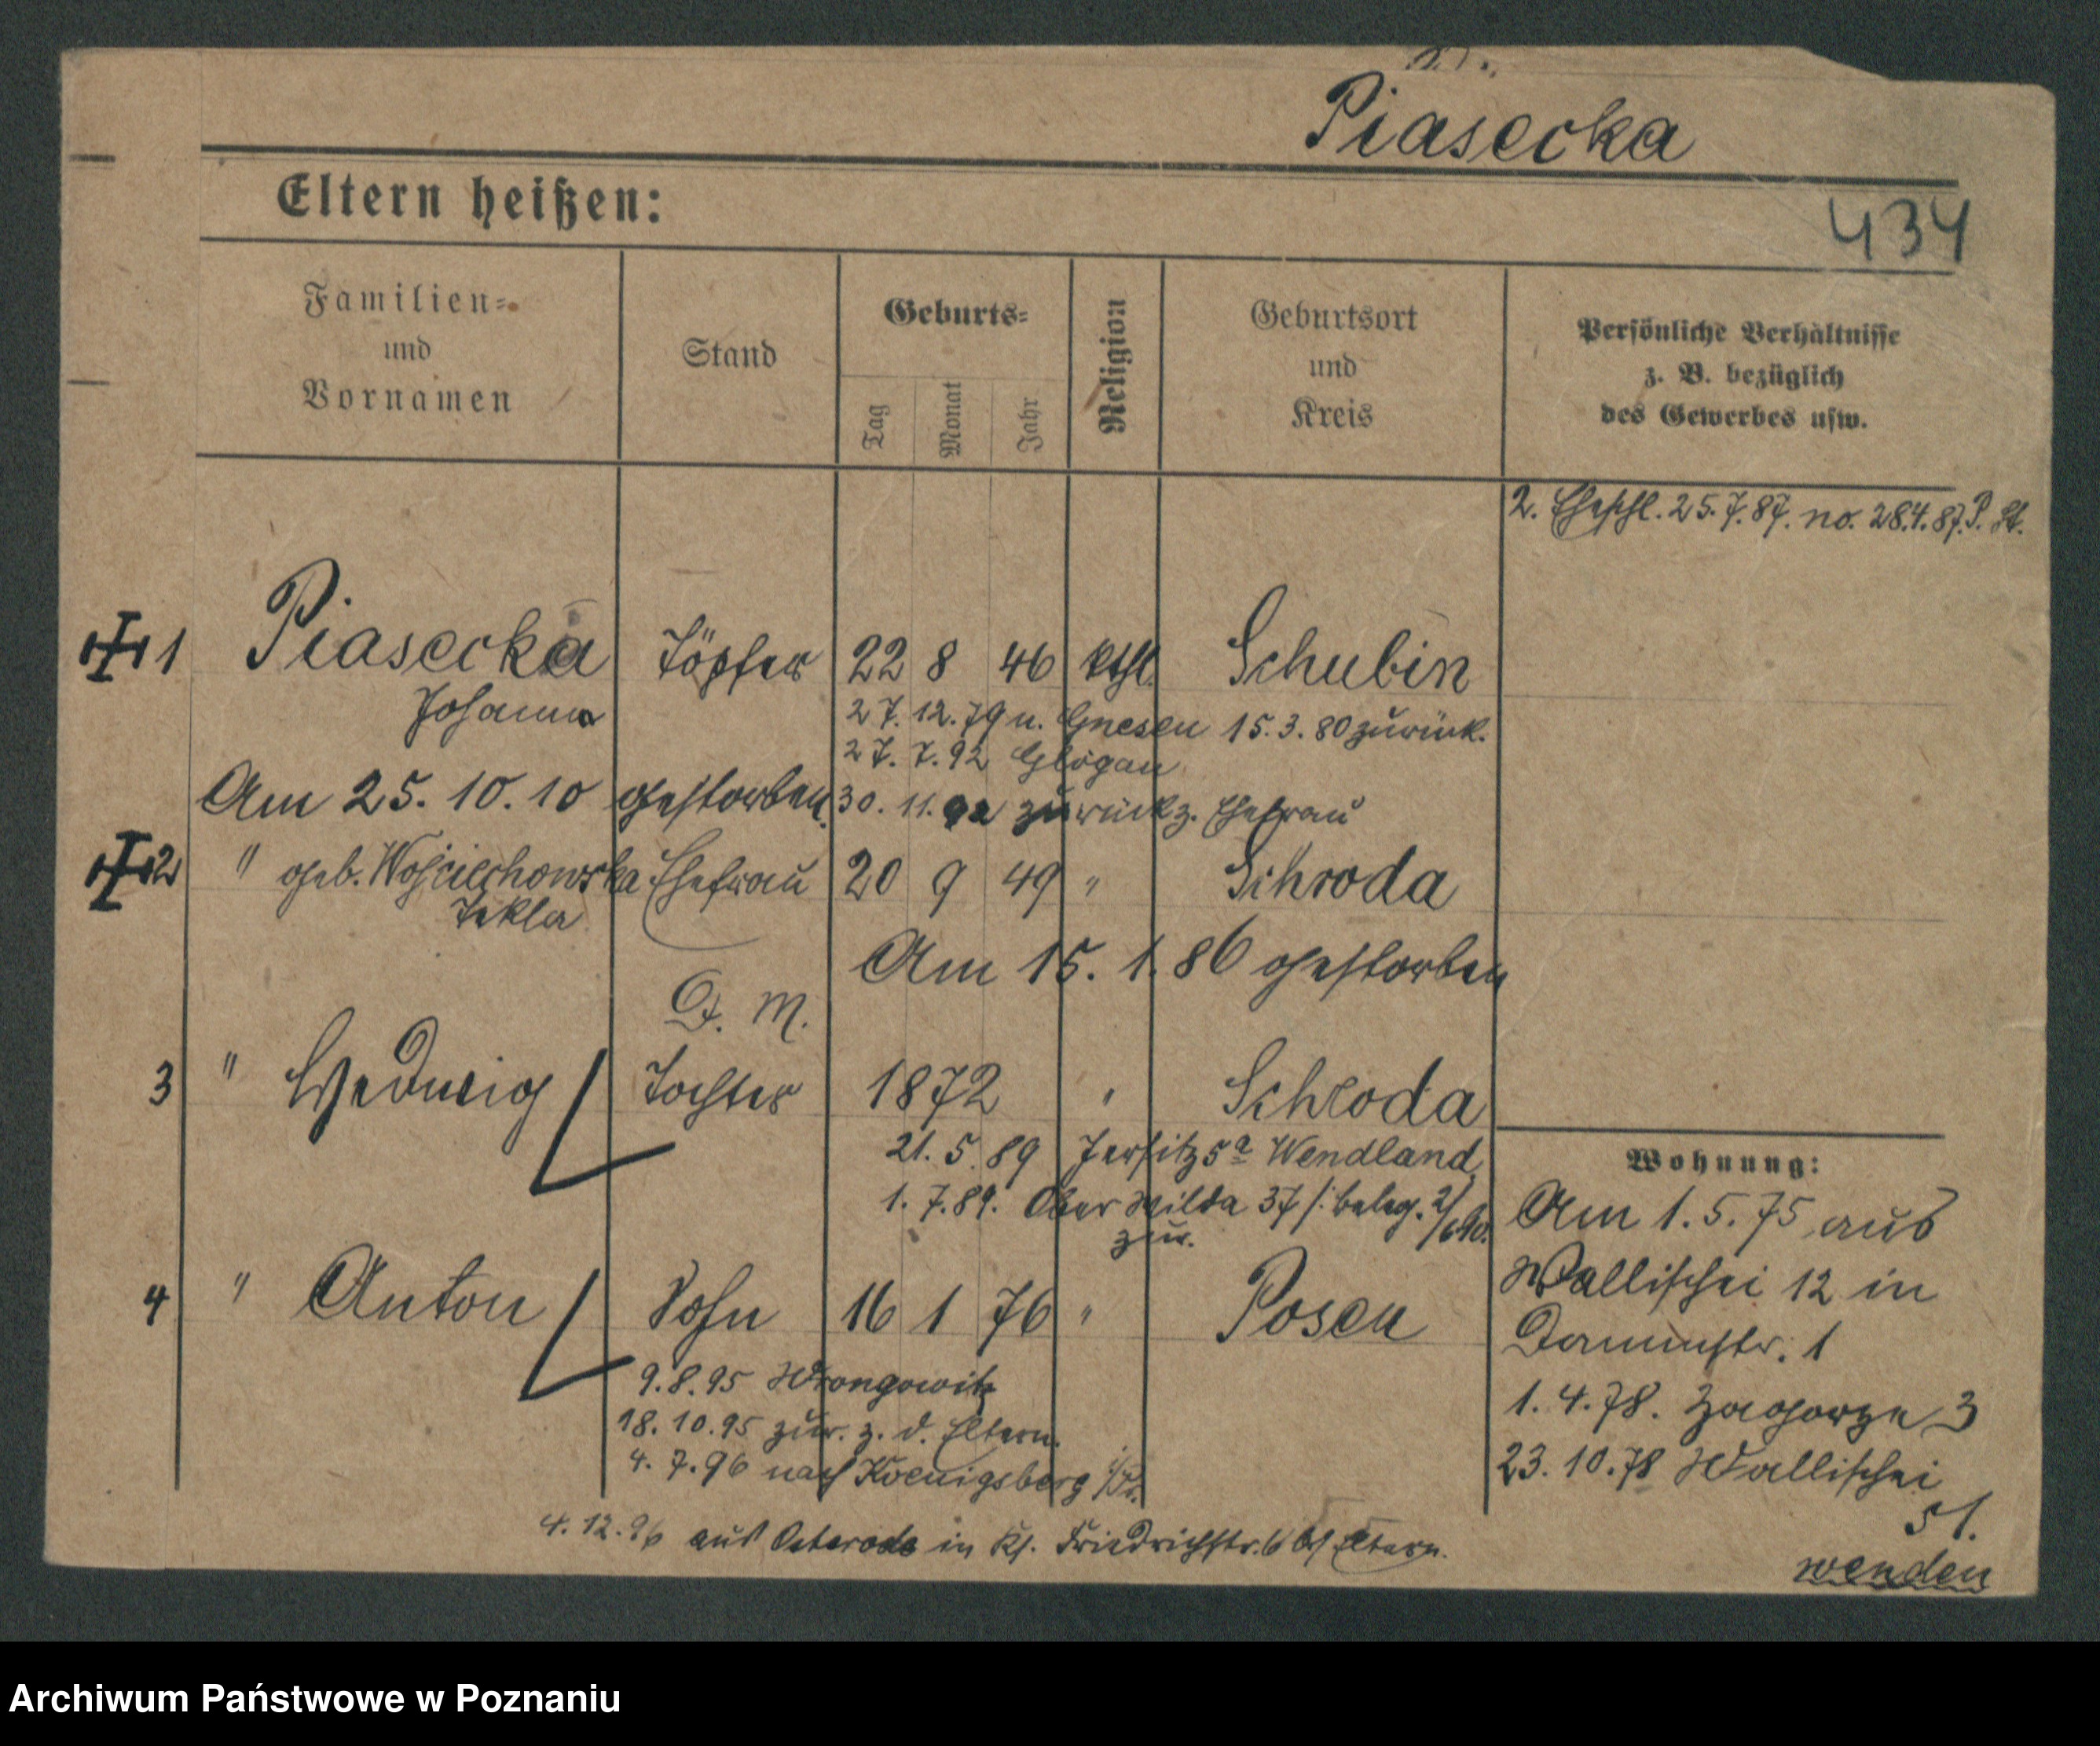 Piasecka
Eltern heißen:
434
Familien=
und
Vornamen
Stand
Geburts=
Tag
Monat
Jahr
Religion
Geburtsort
und
Kreis
Persönliche Verhältnisse
z. B. bezüglich
des Gewerbes usw.
2. Eheschl. 25.7.87. no. 284.87. P. St.
1 Piasecka Töpfer 22 8 46 kthl. Schubin
Johann
27.12.79 n. Gnesen 15.3.80 zurück.
27.7.92 Glogau
Am 25.10.10 gestorben. 30.11.92 zurück z. Ehefrau
2 " geb. Wojciechowska Ehefrau 20 9 49 " Schroda
Tekla
Am 15.1.86 gestorben
D. M.
3 " Hedwig Tochter 1872 " Schroda
21.5.89 Jersitz 5a Wendland
1.7.89. Ober Wilda 37 /: beleg. 2/6 90.
zur.
4 " Anton Sohn 16 1 76 " Posen
9.8.95 Wrongowitz
18.10.95 zur. z. d. Eltern.
4.7.96 nach Koenigsberg i/Pr.
4.12.96 aus Osterode in Kl. Friedrichstr. 6 bei Eltern.
Wohnung:
Am 1.5.75 aus
Wallischei 12 in
Dammstr. 1
1.4.78. Zagorze 3
23.10.78 Wallischei
51.
wenden
Archiwum Państwowe w Poznaniu